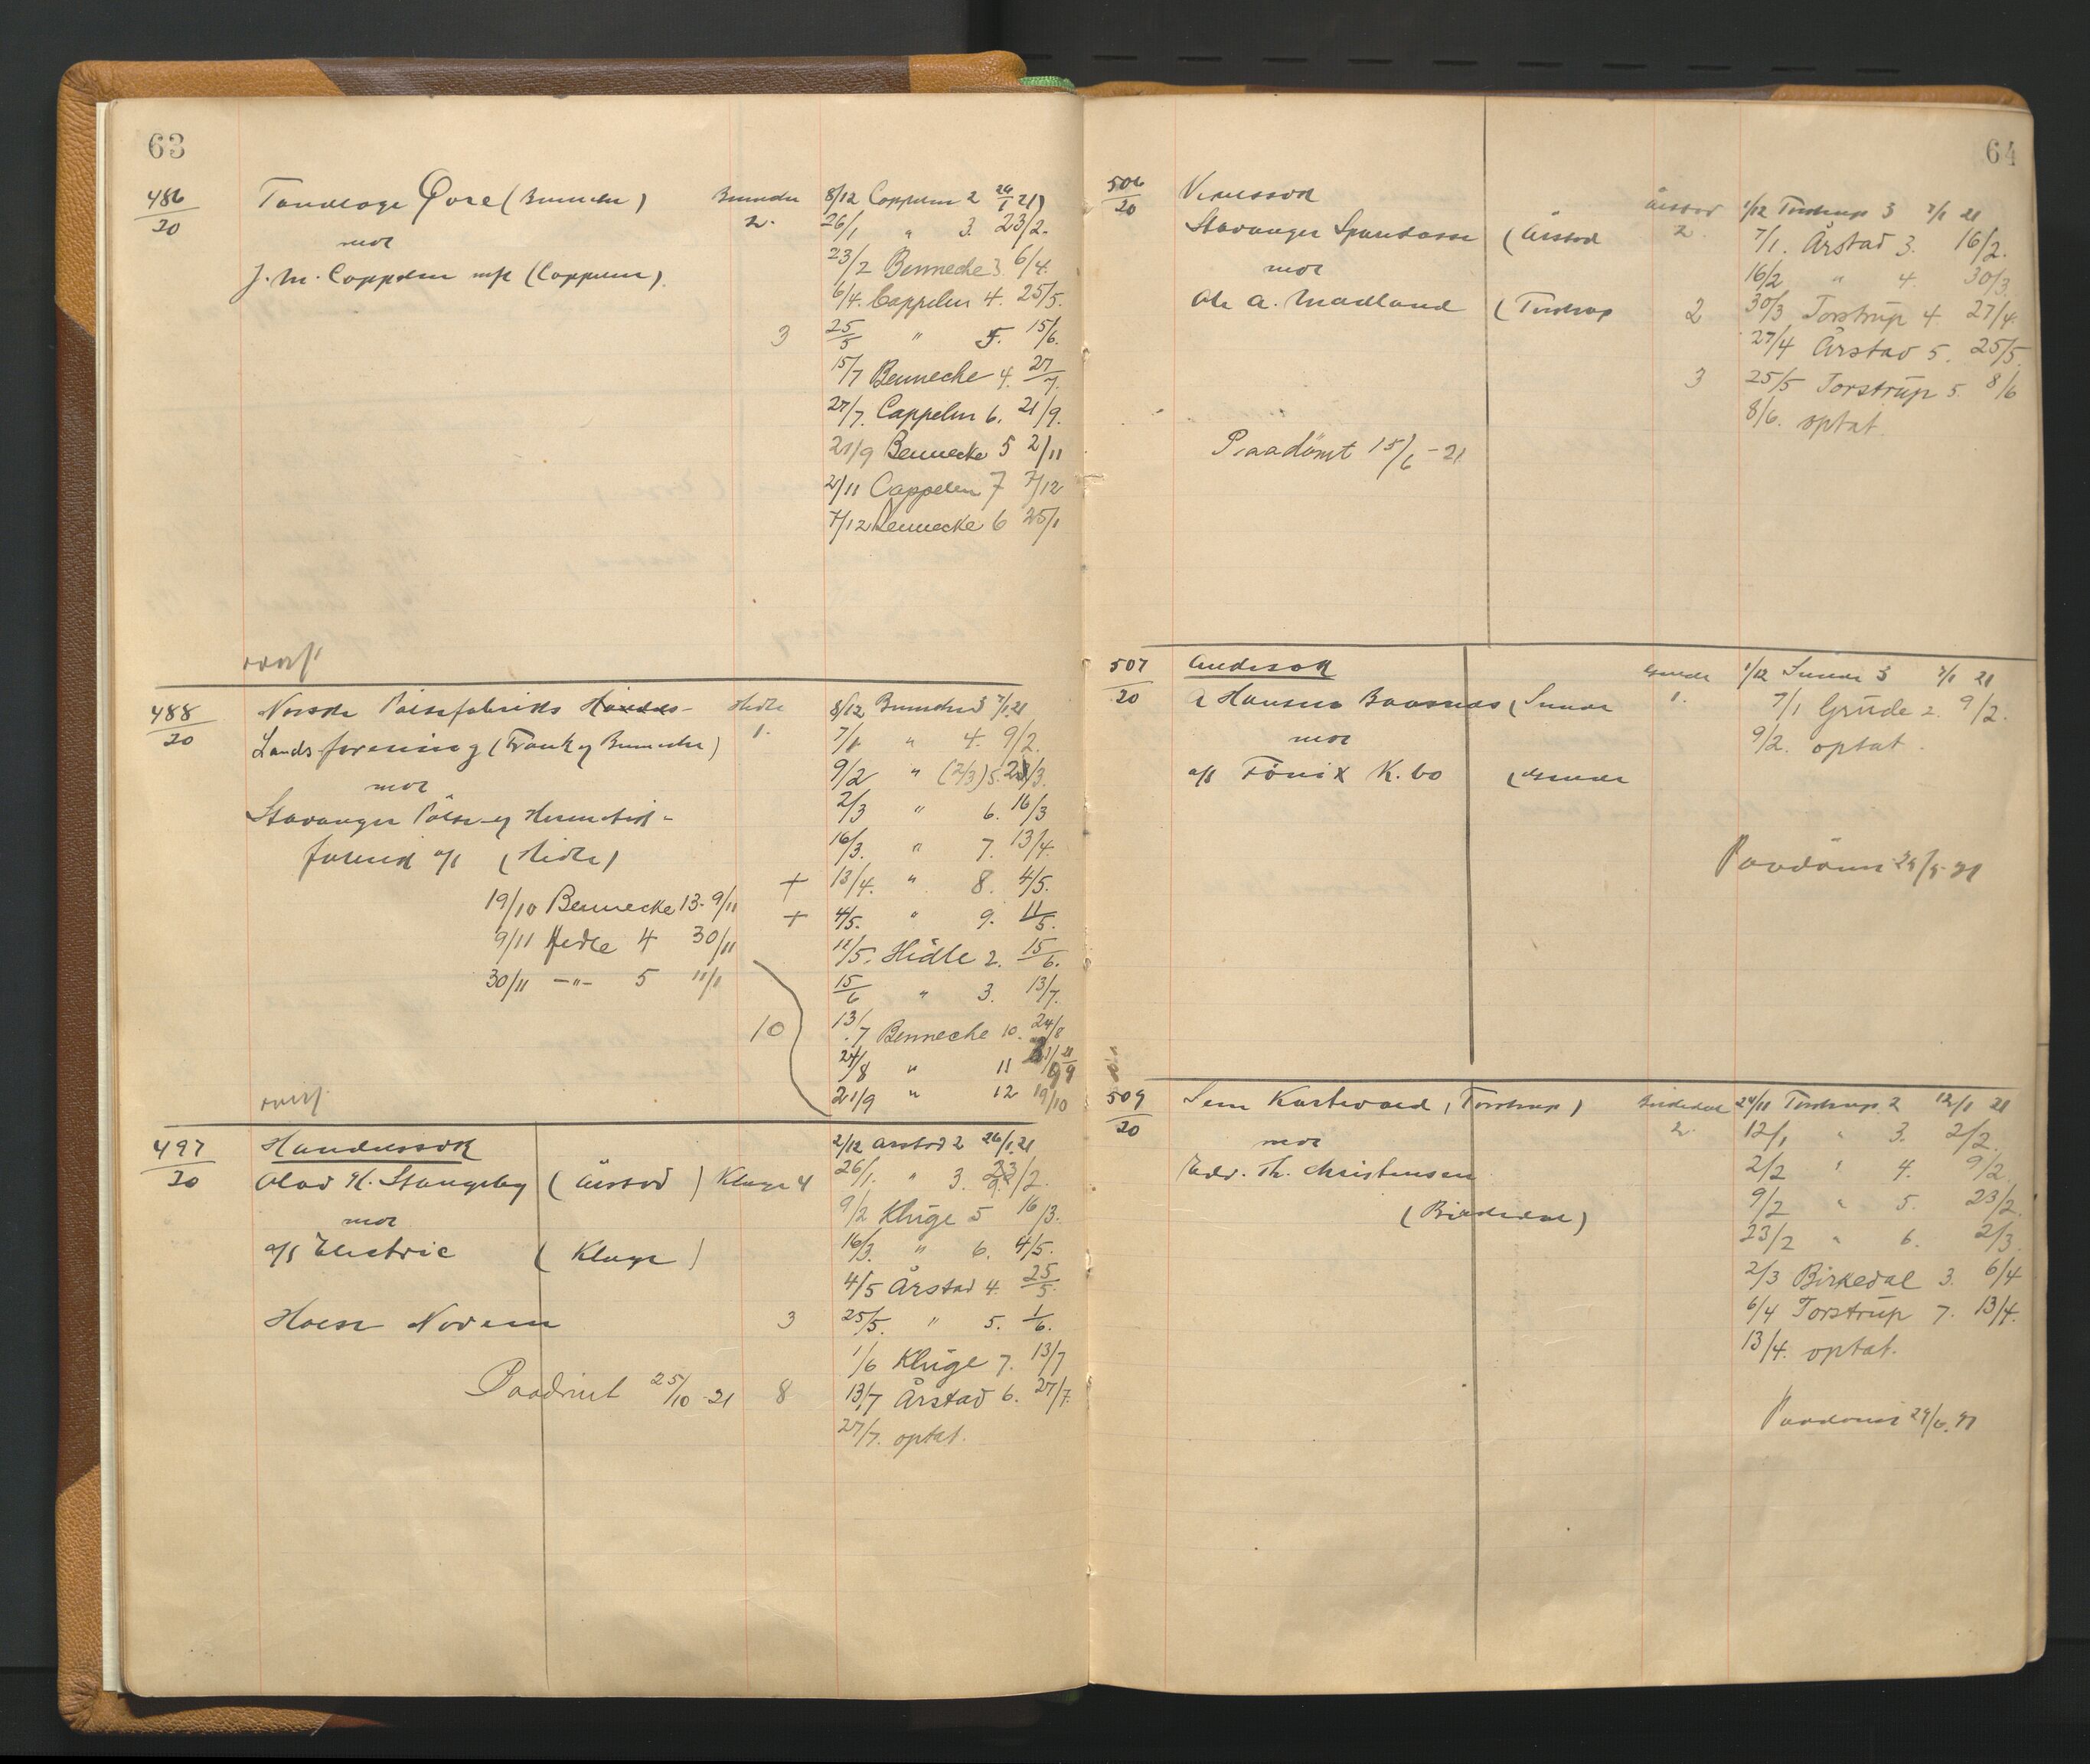 63
486/20 Tandlæge Øvre (Bennecke) Bennecke 8/12 Cappelen 2 26/1 21)
mot 2. 26/1 " 3. 23/2.
J. M. Cappelen mfl (Cappelen). 23/2 Bennecke 3. 6/4.
6/4. Cappelen 4. 25/5.
3 25/5 " 5. 15/6.
15/7 Bennecke 4. 27/7.
27/7. Cappelen 6. 21/9.
21/9 Bennecke 5 2/11
2/11 Cappelen 7 7/12
7/12 Bennecke 6 25/1
overf.
488/20 Norske Pølsefabriks Hidle 8/12 Bennecke 3 7/1 21
Landsforening (Frank og Bennecke) 1. 7/1 " 4. 9/2.
mot 9/2 " (2/3) 5.
Stavanger Pølse- og Hermetik- 2/3 " 6. 16/3
forend a/s (Hidle) 16/3. " 7. 13/4.
+ 13/4. " 8. 4/5.
19/10 Bennecke 13. 9/11
+ 4/5. " 9. 11/5.
9/11 Hidle 4 30/11
11/5. Hidle 2. 15/6.
30/11 -"- 5 11/1
15/6 " 3. 13/7.
10 13/7 Bennecke 10. 24/8
24/8 " 11
21/9 " 12 19/10
overf.
497/20 Handelssak 2/12 Årstad 2 26/1 21
Olav H. Stangeby (Årstad) Kluge 4 26/1. " 3.
mot 9/2 Kluge 5 16/3.
a/s Electric (Kluge) 16/3. " 6. 4/5.
4/5 Årstad 4. 25/5.
3 25/5. " 5. 1/6.
1/6 Kluge 7. 13/7
Paadømt 25/10 21 8 13/7 Årstad 6. 27/7.
27/7. optat.
64
506/20 Vexelsak Årstad 1/12 Torstrup 3 7/1 21
Stavanger Sparekasse (Årstad 2 7/1. Årstad 3. 16/2.
mot 16/2 " 4. 30/3.
Ole A. Madland (Torstrup 2 30/3 Torstrup 4. 27/4.
27/4 Årstad 5. 25/5.
3 25/5 Torstrup 5. 8/6
8/6. optat.
Paadømt 15/6 - 21
507/20 Grude 1/12 Sunde 3 7/1 21
A Hansens Baasnes (Sunde 1. 7/1 Grude 2. 9/2.
mot 9/2. optat.
a/s Fönix K. Co (Grude
509/20 (Torstrup) Birkedal 24/11 Torstrup 2 12/1 21
mot 2. 12/1 " 3. 2/2.
Edv. Th. Christensen 2/2 " 4. 9/2.
(Birkedal) 9/2 " 5. 23/2.
23/2 " 6. 2/3.
2/3 Birkedal 3. 6/4
6/4 Torstrup 7. 13/4.
13/4. optat.